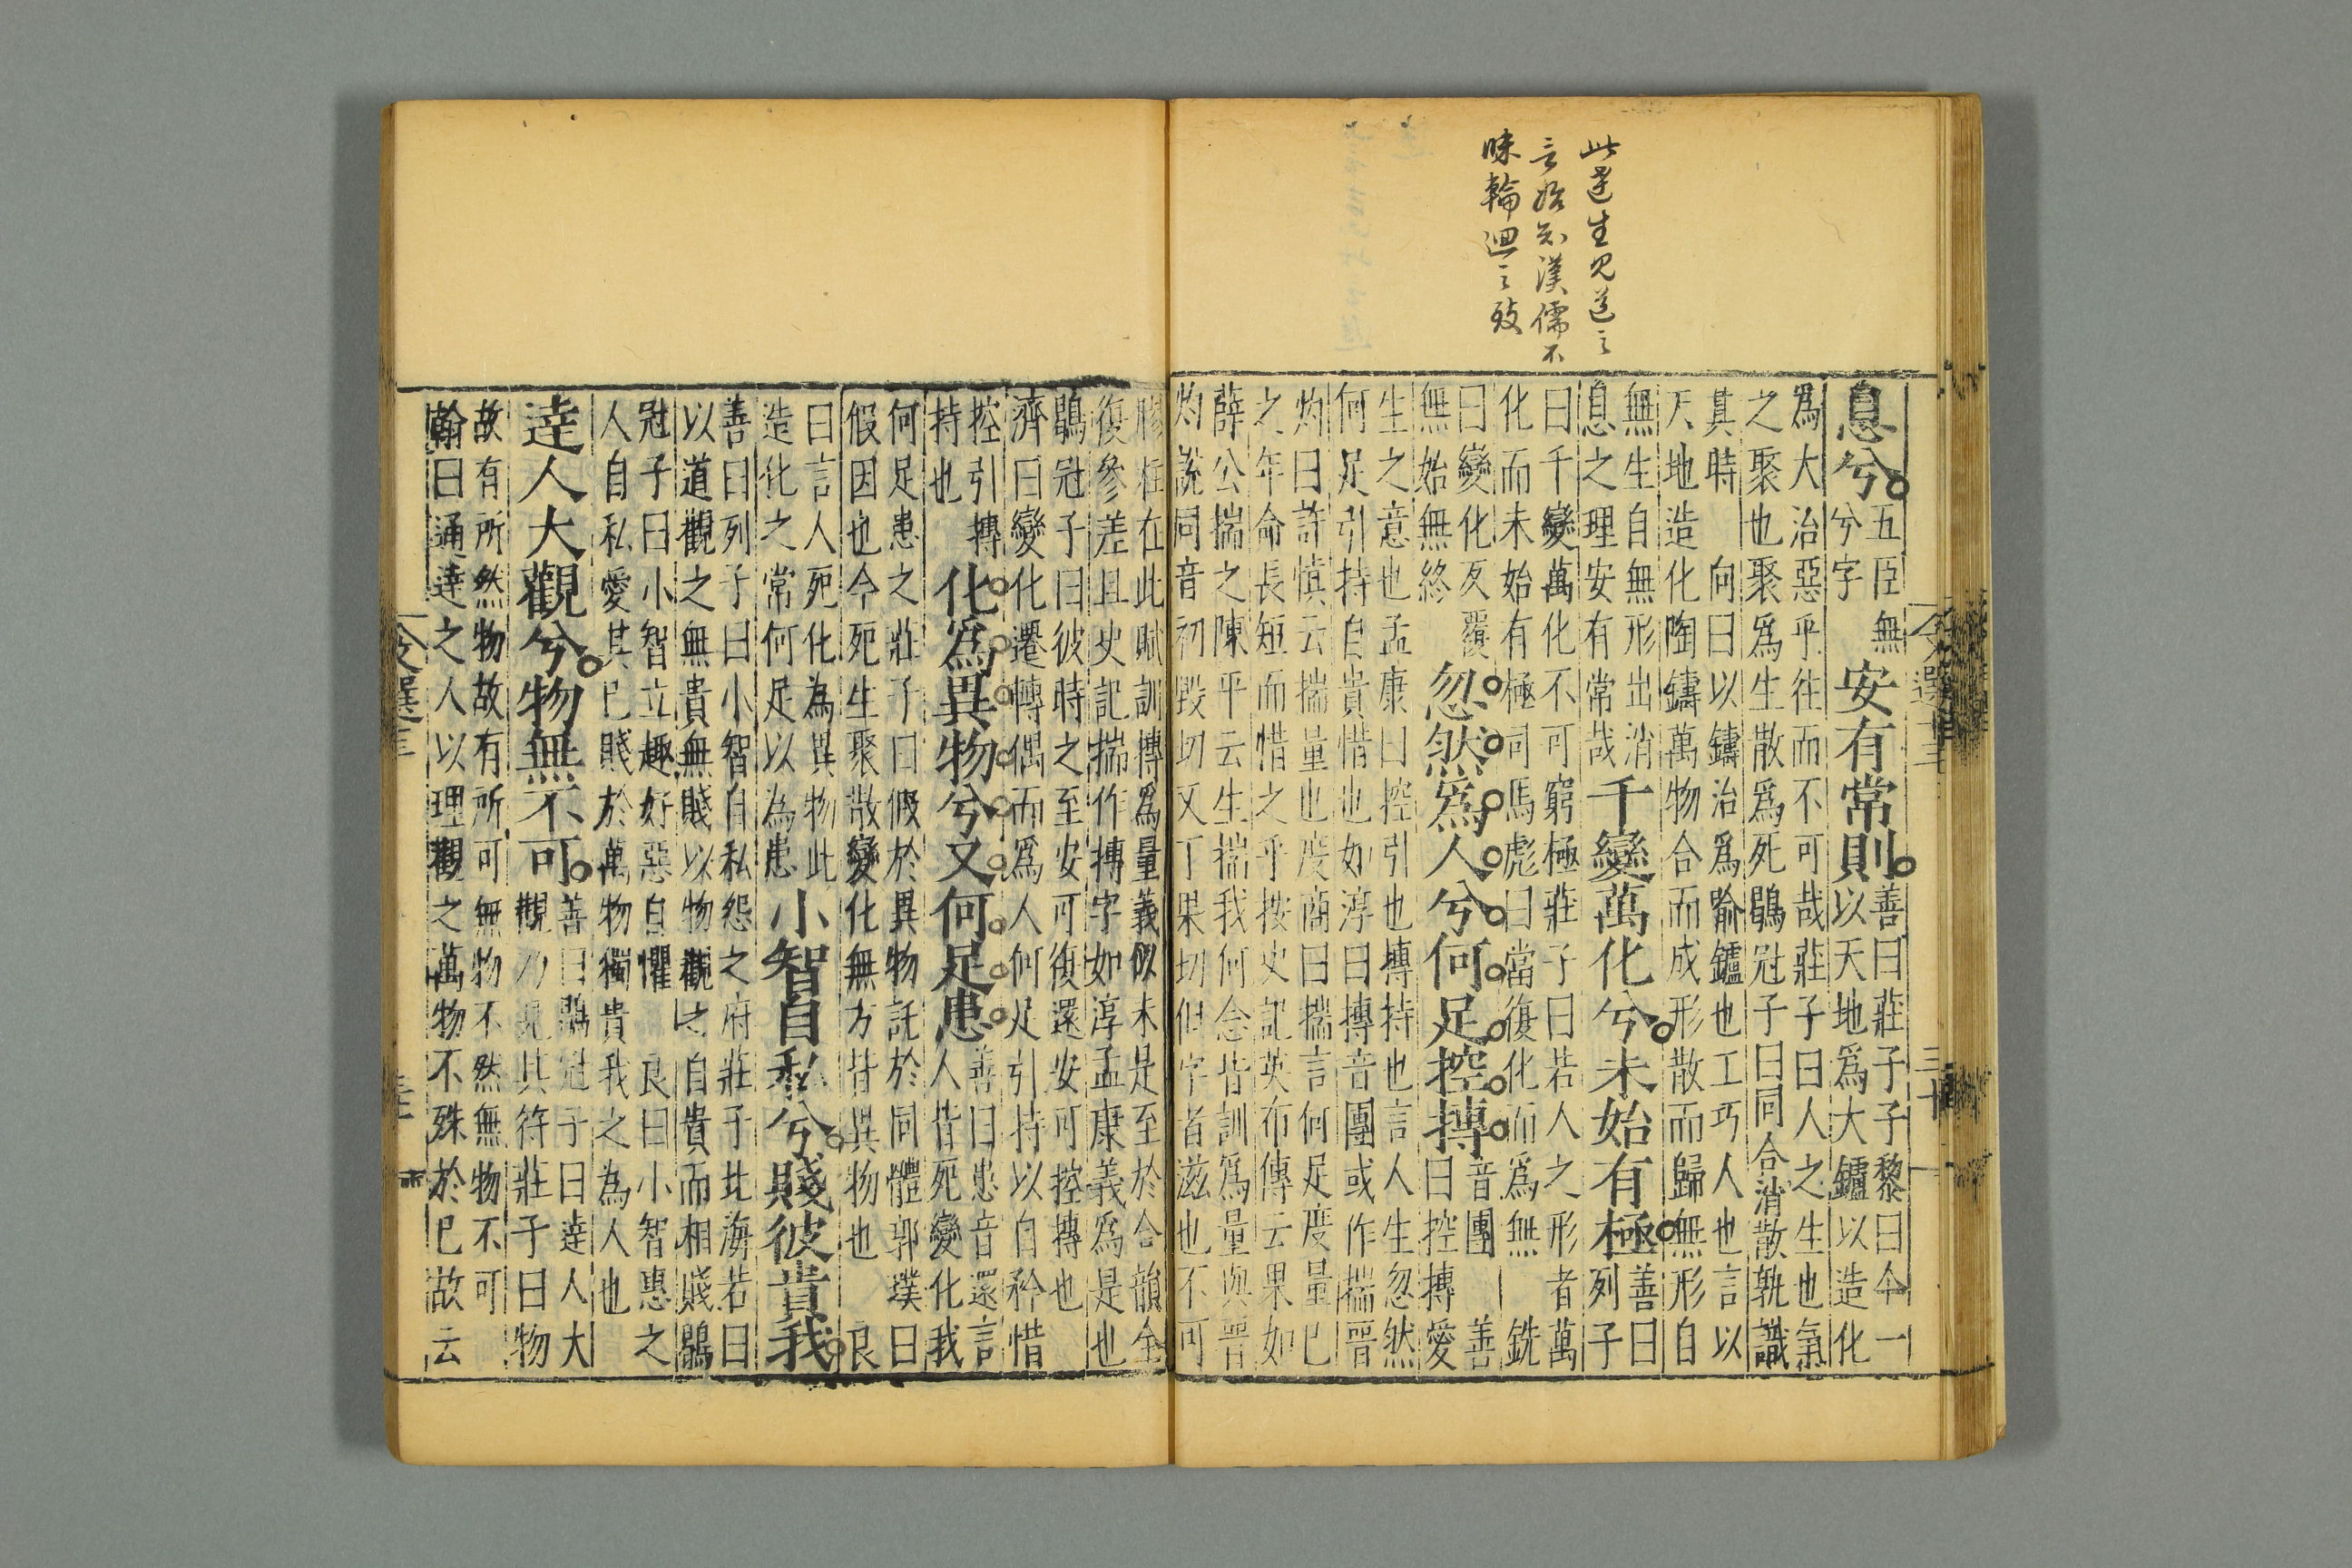 此達生見道之
言始知漢儒不
昧輪迴之致
息兮五臣無
兮字安有常則善曰莊子子黎曰今一
以天地爲大鑪以造化
爲大冶惡乎往而不可哉莊子曰人之生也氣
之聚也聚爲生散爲死鶡冠子曰同合消散孰識
其時 向曰以鑄冶爲喻鑪也工巧人也言以
天地造化陶鑄萬物合而成形散而歸無形自
無生自無形出消
息之理安有常哉千變萬化兮未始有極善曰
列子
曰千變萬化不可窮極莊子曰若人之形者萬
化而未始有極司馬彪曰當復化而爲無 銑
曰變化反覆
無始無終忽然爲人兮何足控摶音團 善
曰控摶愛
生之意也孟康曰控引也摶持也言人生忽然
何足引持自貴惜也如淳曰摶音團或作揣晉
灼曰許慎云揣量也度商曰揣言何足度量己
之年命長短而惜之乎按史記英布傳云果如
薛公揣之陳平云生揣我何念皆訓爲量與晉
灼說同音初毀切又丁果切但字者滋也不可
膠柱在此賦訓摶爲量義似未是至於合韻全
復參差且史記揣作摶字如淳孟康義爲是也
鶡冠子曰彼時之至安可復還安可控摶也
濟曰變化遷轉偶而爲人何足引持以自矜惜
控引 摶
持也化爲異物兮又何足患善曰患音還言
人皆死變化我
何足患之莊子曰假於異物託於同體郭璞曰
假因也今死生聚散變化無方皆異物也 良
曰言人死化為異物此
造化之常何足以為患小智自私兮賤彼貴我
善曰列子曰小智自私怨之府莊子北海若曰
以道觀之無貴無賤以物觀之自貴而相賤鶡
冠子曰小智立趣好惡自懼 良曰小智惠之
人自私愛其己賤於萬物獨貴我之為人也
達人大觀兮物無不可善曰鶡冠子曰達人大
觀乃見其符莊子曰物
故有所然物故有所可無物不然無物不可
翰曰通達之人以理觀之萬物不殊於己故云
文選十三
三十